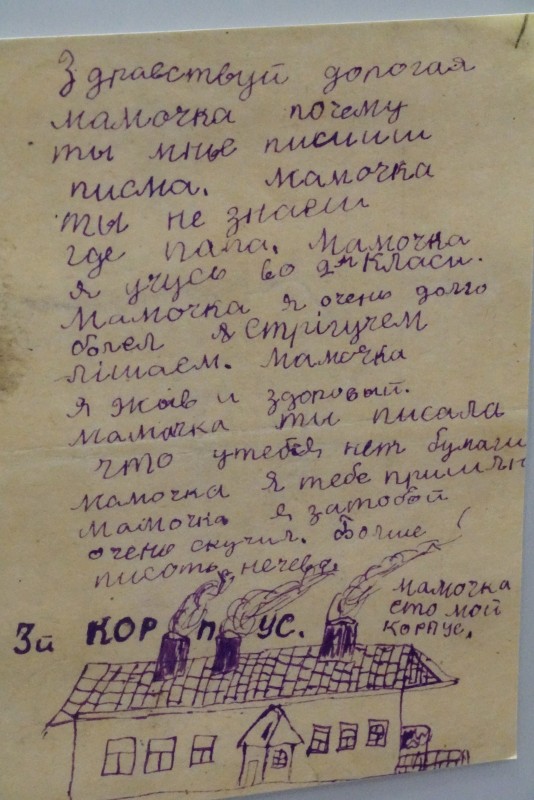 Здравствуй дорогая
мамочка почему
ты мнье писиши
писма. мамочка
ты не знаеш
где папа. Мамочка
я учусь во 2м класи.
мамочка я очень долго
болел я стрігучем
лішаєм. мамочка
я жыв и здоровый.
мамочка ти писала
что утебя нет бумаги
мамочка я тебе пришлю
мамочка я затобой
очено скучил. Болше
писать нечево.
мамочка
ето мой
корпус.
3й КОРПУС.